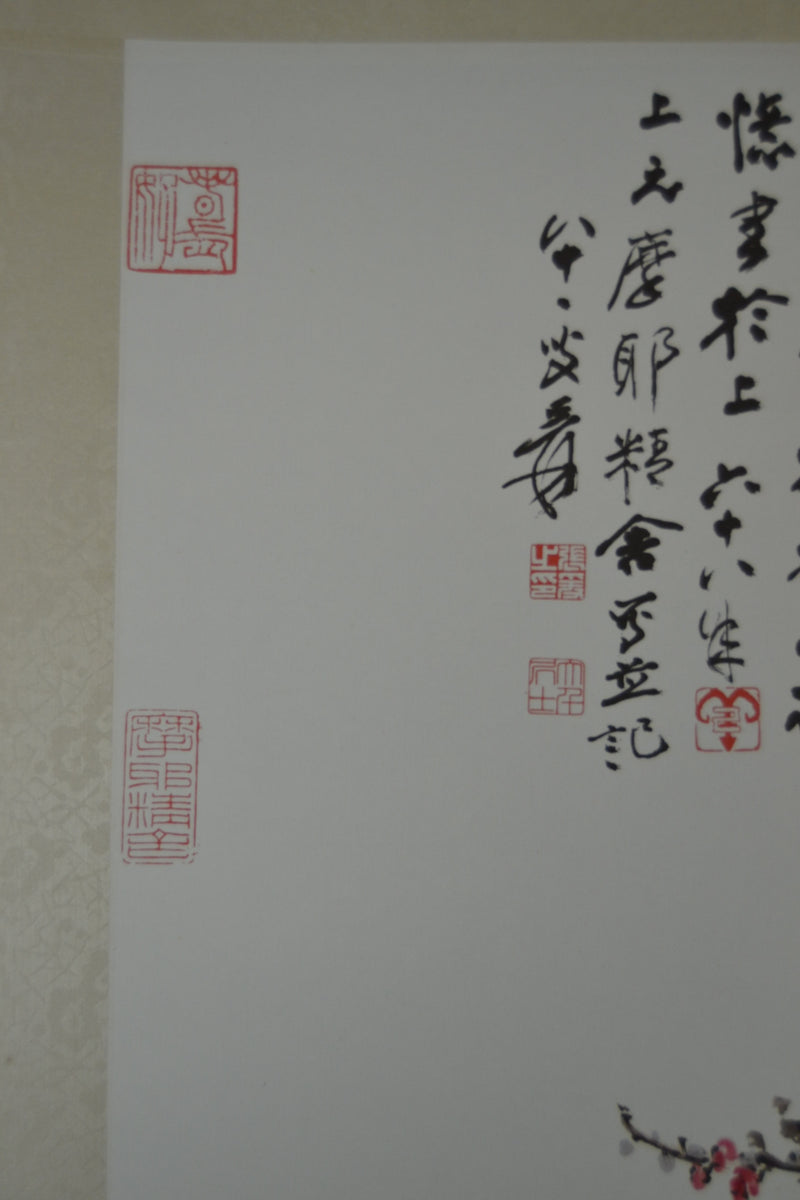 書於上 六十八年
上元摩耶精舍寫並記
八十一叟爰
張爰之印
大千居士
摩耶精舍